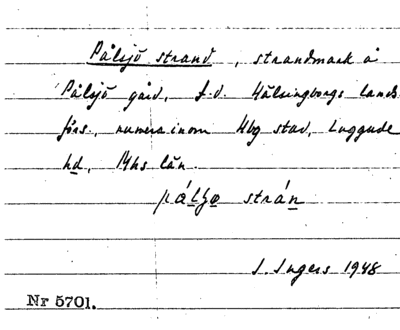 Pålsjö strand, strandmark å
Pålsjö gård, f.d. Hälsingborgs lands
förs., numera inom Hbg stad, Luggude
hd, Mhs län.
pálʃø strán
I. Ingers 1948
Nr 5701.